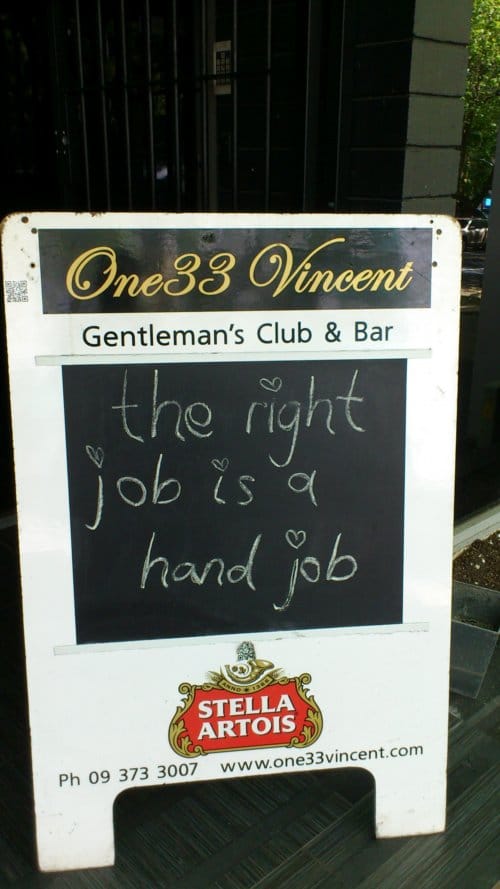 One33 Vincent
Gentleman's Club & Bar
the right
job is a
hand job
ANNO 1366
STELLA
ARTOIS
Ph 09 373 3007 www.one33vincent.com